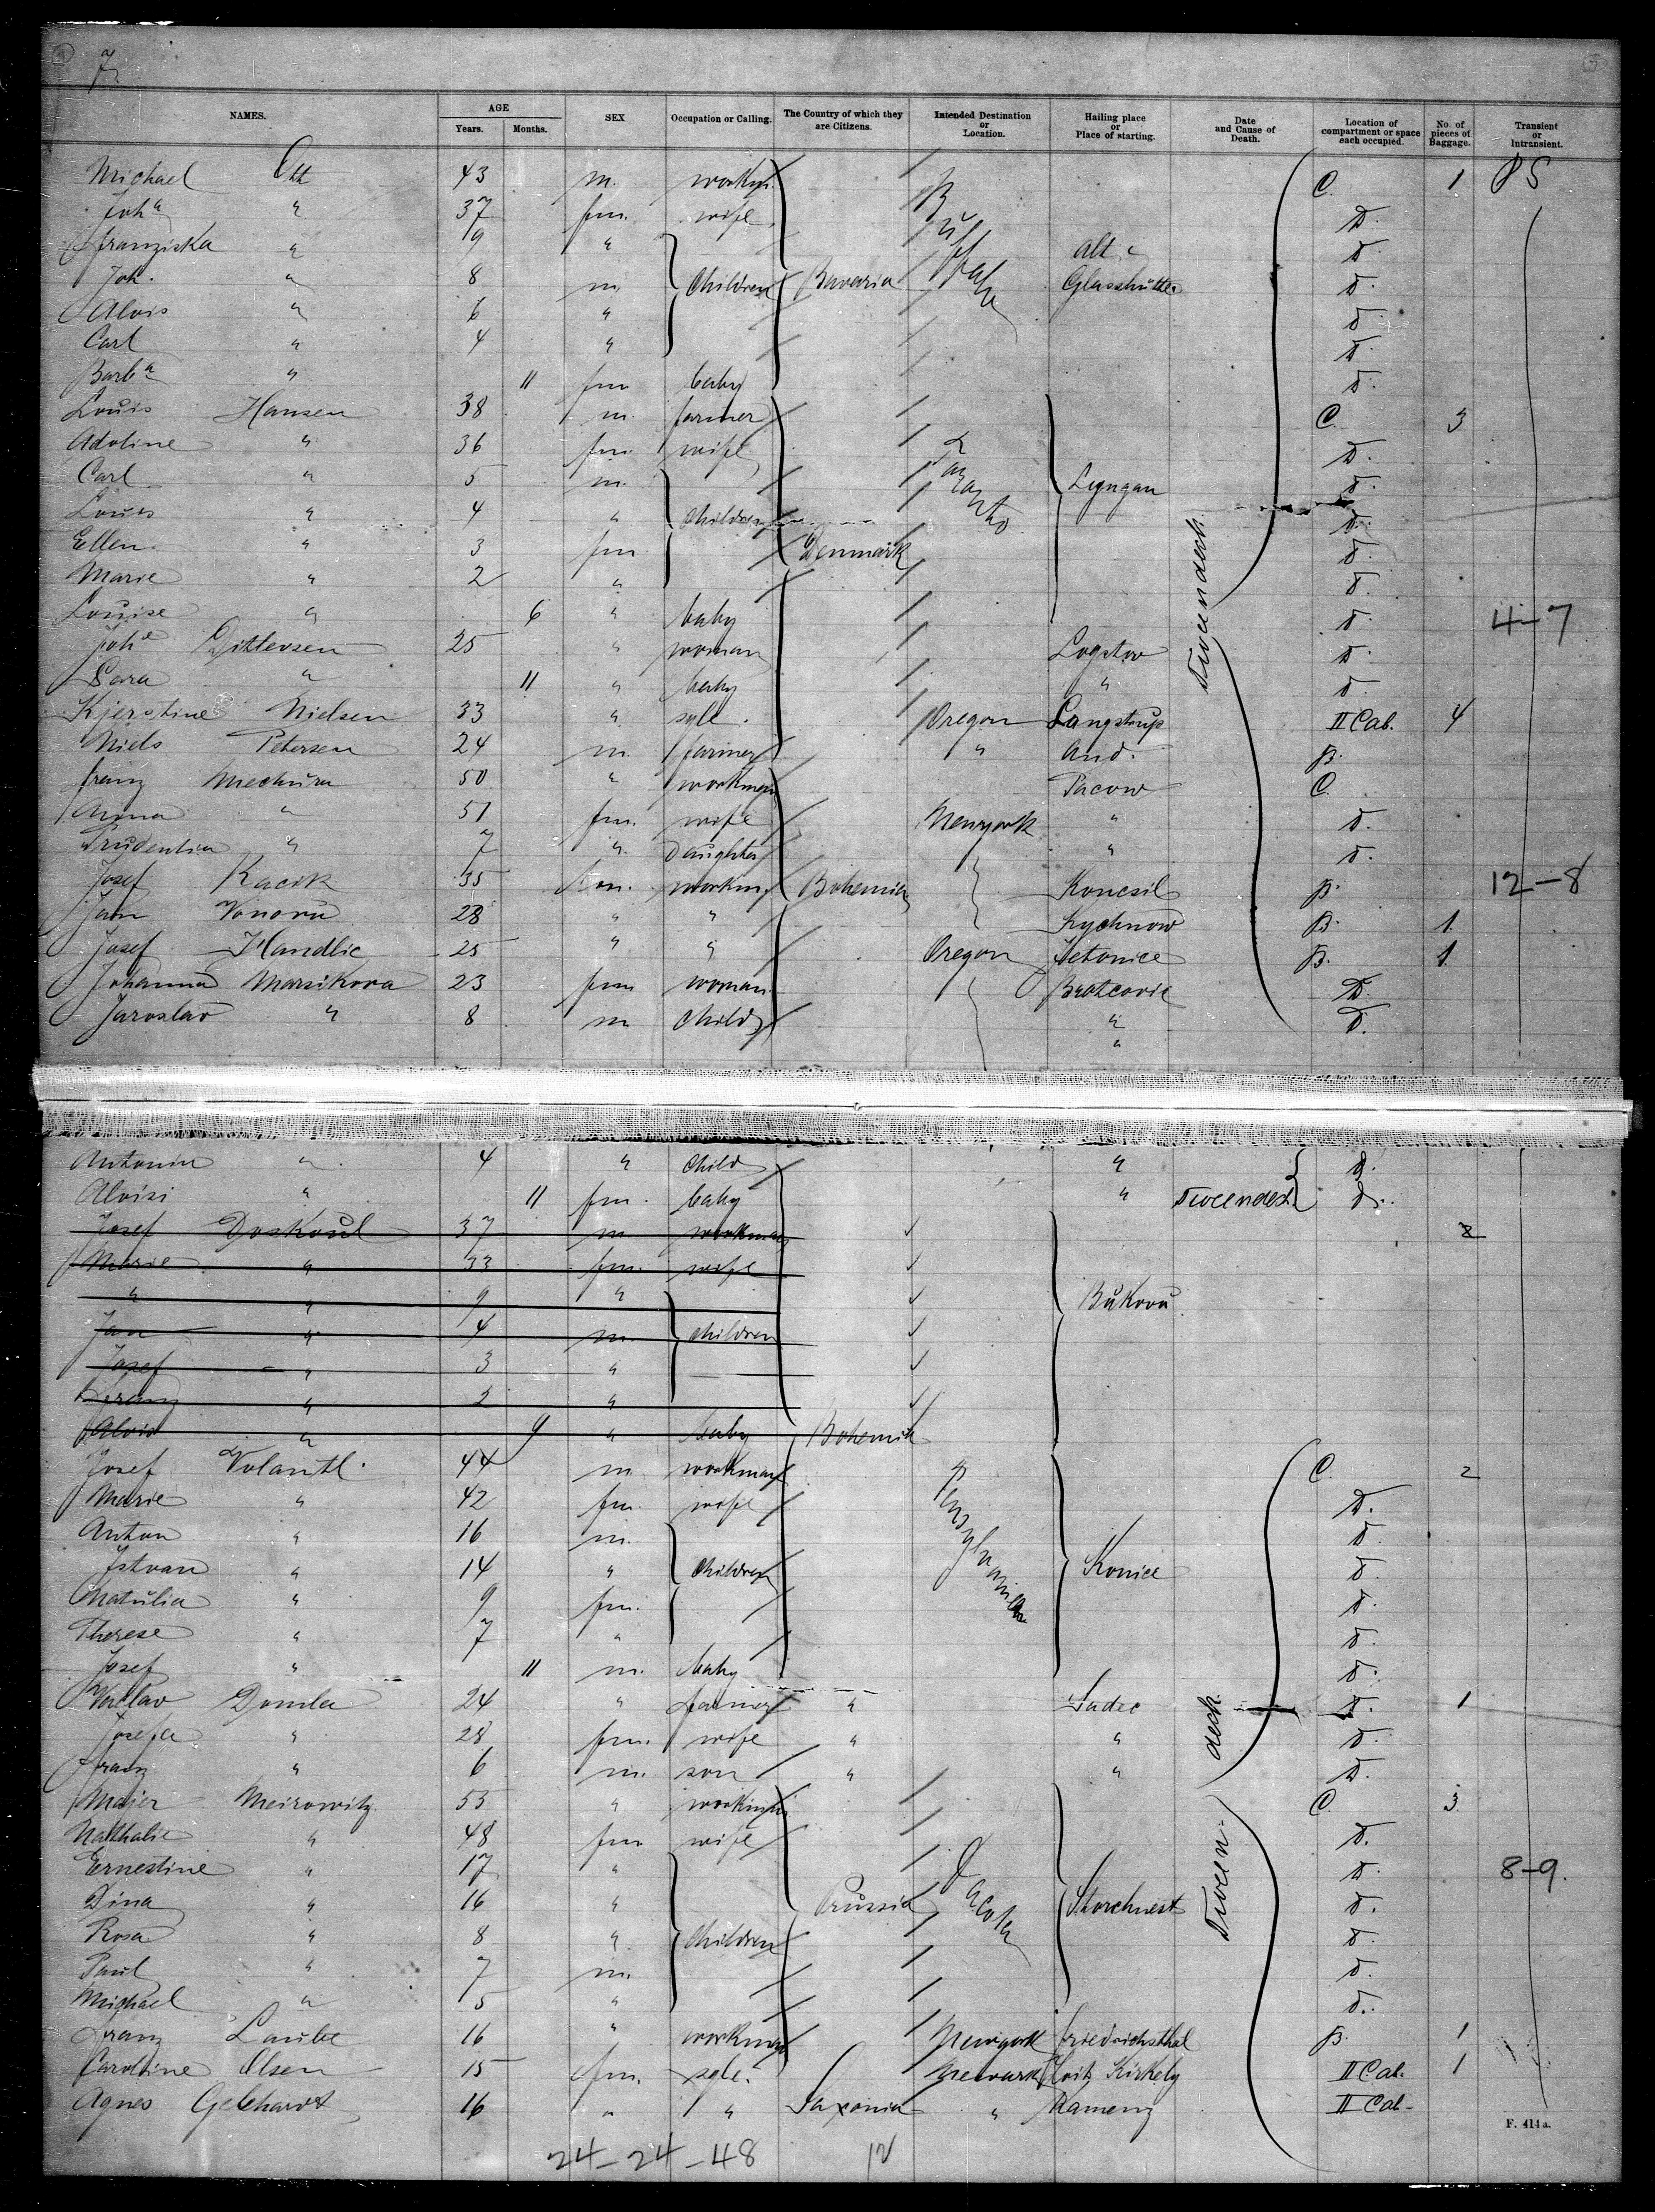 7.
NAMES. AGE Years. Months. SEX Occupation or Calling. The Country of which they are Citizens. Intended Destination or Location. Hailing place or Place of starting. Date and Cause of Death. Location of compartment or space each occupied. No. of pieces of Baggage. Transient or Intransient.
Michael Ott 43 m. workm. C. 1 PS
Joh.a " 37 fm. wife D.
Franziska " 9 " Alt- D.
Joh. " 8 m. Children Bavaria Buffalo Glashütte D.
Alois " 6 " D.
Carl " 4 " D.
Barb.a " 11 fm baby D.
Louis Hansen 38 m. farmer C. 3
Adoline " 36 fm. wife D.
Carl " 5 m. Lyngan D.
Louis " 4 " children D.
Ellen " 3 fm Denmark D.
Marie " 2 " Tweendeck D.
Louise " 6 " baby D. 4-7
Joh.e Ditlevsen 25 " woman Logstov D.
Sara " 11 " baby " D.
Kjerstine Nielsen 33 " sgle. Oregon Langstrup II Cab. 4
Niels Petersen 24 m. farmer " And. B.
Franz Mechura 50 " workman Pacow C.
Anna " 51 fm. wife Newyork " D.
Prudentia " 7 " daughter " D.
Josef Kacik 35 m. workm. Bohemia Koncsil B. 12-8
Jan Vonoru 28 " " Rychnow B. 1
Josef Handlic 25 " " Oregon Jetonice B. 1.
Johanna Marsikova 23 fm woman Bratcovic D.
Jaroslav " 8 m child " D.
"
Antonin " 4 " child " D.
Aloisi " 11 fm. baby " Tweendeck D.
Josef Doskoul 37 m workman 2
Marie " 33 fm. wife
" " 9 " Bukovu
Jan " 4 m. children
Josef " 3 "
Franz " 2 "
Alois " 9 " baby Bohemia
Josef Volantl 44 m. workman C. 2
Marie " 42 fm. wife D.
Anton " 16 m. D.
Istvan " 14 " children Pensylvania Konice D.
Matulia " 9 fm. D.
Therese " 7 " D.
Josef " 11 m. baby D.
Vaclav Domla 24 " farmer " Sadec D. 1
Josefa " 28 fm. wife " " deck D.
Franz " 6 m. son " " D.
Majer Meirowitz 53 " workm. C. 3
Nathalie " 48 fm wife D.
Ernestine " 17 " D. 8-9.
Dina " 16 " Prussia Dacota Storchnest Tween- D.
Rosa " 8 " children D.
Paul " 7 m. D.
Michael " 5 " D.
Franz Laube 16 " workman Newyork Friedrichsthal B. 1
Caroline Olsen 15 fm. sgle. Newark Kirkeby II Cab. 1
Agnes Gebhardt 16 " " Saxonia " Kamenz II Cab-
F. 414a.
24-24-48 12